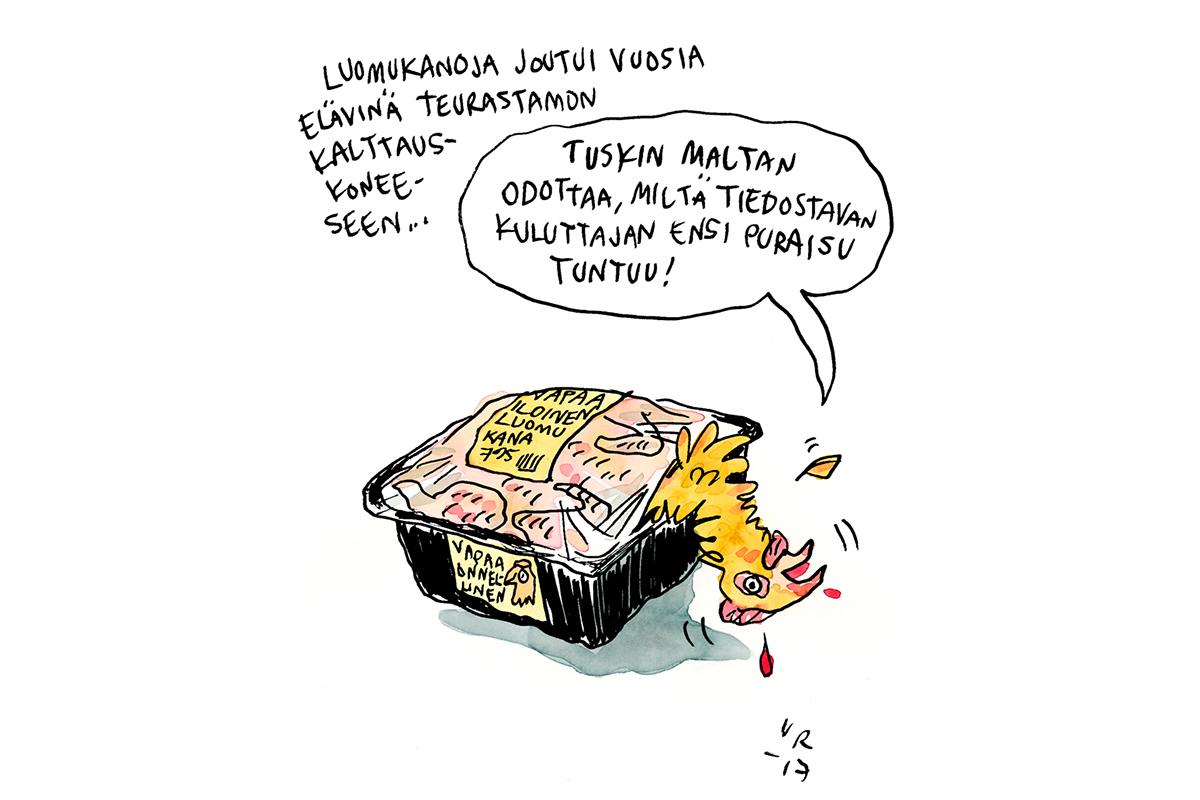 LUOMUKANOJA JOUTUI VUOSIA
ELÄVINÄ TEURASTAMON
KALTTAUS-
KONEE-
SEEN...
TUSKIN MALTAN
ODOTTAA, MILTÄ TIEDOSTAVAN
KULUTTAJAN ENSI PURAISU
TUNTUU!
VAPAA
ILOINEN
LUOMU
KANA
795
VAPAA
ONNEL-
LINEN
VR
-17